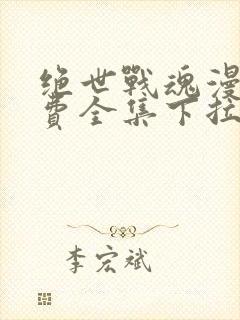 绝世戰魂漫
費全集下拉
李宏斌